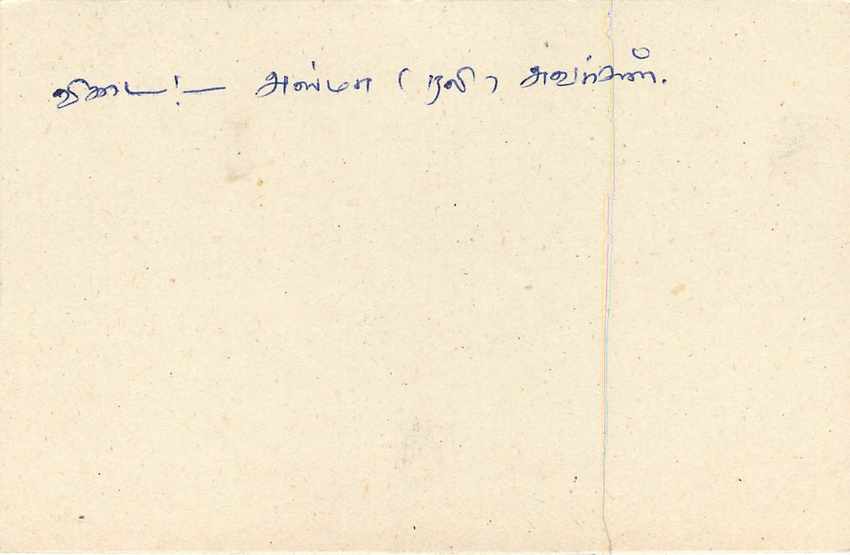 விடை:- அஸ்மா (ரலி) அவர்கள்.